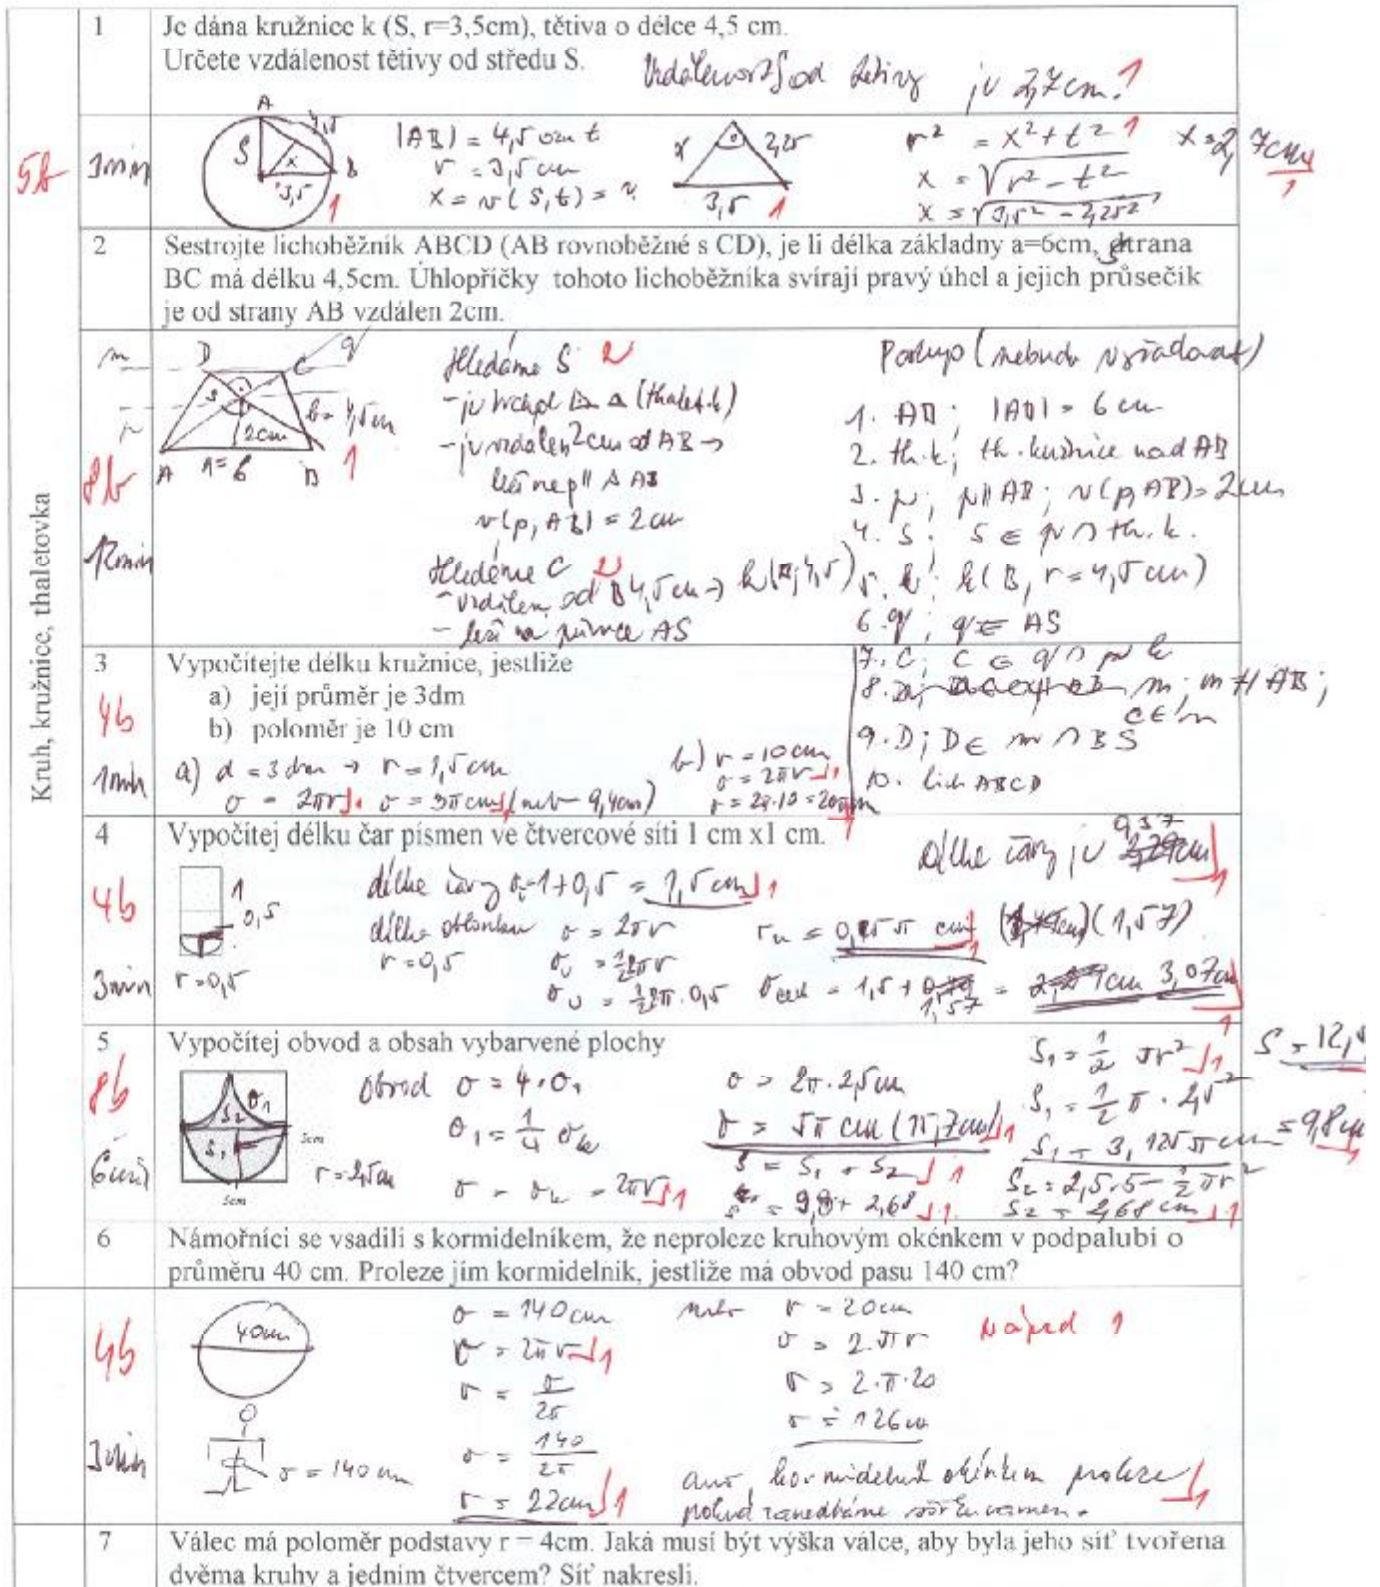 Kruh, kružnice, thaletovka
1
Je dána kružnice k (S, r=3,5cm), tětiva o délce 4,5 cm.
Určete vzdálenost tětivy od středu S.
Vzdálenost S od tětivy je 2,7cm. 1
5b
3min
A
4,5
S
x
B
3,5
1
|AB| = 4,5 cm t
r = 3,5 cm
x = v(S,t) = ?
x
2,25
3,5
1
r² = x² + t² 1
x = √r² - t²
x = √3,5² - 2,25²
x = 2,7cm
1
2
Sestrojte lichoběžník ABCD (AB rovnoběžné s CD), je li délka základny a=6cm, strana
BC má délku 4,5cm. Úhlopříčky tohoto lichoběžníka svírají pravý úhel a jejich průsečík
je od strany AB vzdálen 2cm.
8b
12min
m
D
C
q
p
S
b = 4,5cm
2cm
A
a = 6
B
1
Hledáme S 2
- je vrchol △ (thalet.k)
- je vzdálen 2cm od AB →
leží na p || s AB
v(p, AB) = 2cm
Hledáme C 2
- vzdálen od B 4,5cm → k(B; 4,5)
- leží na přímce AS
Postup (nebudu vyžadovat)
1. AB; |AB| = 6 cm
2. th.k; th. kružnice nad AB
3. p; p || AB; v(p, AB) = 2cm
4. S; S ∈ p ∩ th.k.
5. k; k(B, r = 4,5cm)
6. q; q = AS
7. C; C ∈ q ∩ k
8. m; m || AB;
C ∈ m
9. D; D ∈ m ∩ BS
10. lich ABCD
3
Vypočítejte délku kružnice, jestliže
a) její průměr je 3dm
b) poloměr je 10 cm
4b
1min
a) d = 3dm → r = 1,5cm
o = 2πr 1 o = 3π cm 1 (neb 9,4cm)
b) r = 10cm
o = 2πr 1
o = 2π·10 = 20πcm
1
4
Vypočítej délku čar písmen ve čtvercové síti 1 cm x1 cm.
4b
3min
1
0,5
r = 0,5
délka čáry 1+0,5 = 1,5cm 1
délka oblouku o = 2πr
r = 0,5
= ½ 2πr
= ½ 2π · 0,5
(1,57)
= 1,5 +
1,57
= 3,07cm
1
Délka čáry je
1
5
Vypočítej obvod a obsah vybarvené plochy
8b
6min
S₂
o₁
S₁
5cm
5cm
r = 2,5cm
obvod o = 4·o₁
o₁ = ¼ oₖ
o = oₖ = 2πr 1
o = 2π · 2,5cm
o = 5π cm (15,7cm) 1
S = S₁ + S₂ 1
= 9,8 + 2,68 1
S₁ = ½ πr² 1
S₁ = ½ π · 2,5²
S₁ = 3,125π cm = 9,8cm
1
S₂ = 2,5·5 - ½πr²
S₂ = 2,68 cm 1
6
Námořníci se vsadili s kormidelníkem, že neproleze kruhovým okénkem v podpalubí o
průměru 40 cm. Proleze jím kormidelník, jestliže má obvod pasu 140 cm?
4b
3min
40cm
o = 140 cm
o = 140cm
o = 2πr 1
r = o/2π
r = 140/2π
r = 22cm 1
nebo r = 20cm
o = 2·πr
o = 2·π·20
o = 126cm
Nápad 1
ano, kormidelník okénkem proleze 1
pokud zanedbáme šířku ramen.
7
Válec má poloměr podstavy r = 4cm. Jaká musí být výška válce, aby byla jeho síť tvořena
dvěma kruhy a jedním čtvercem? Síť nakresli.